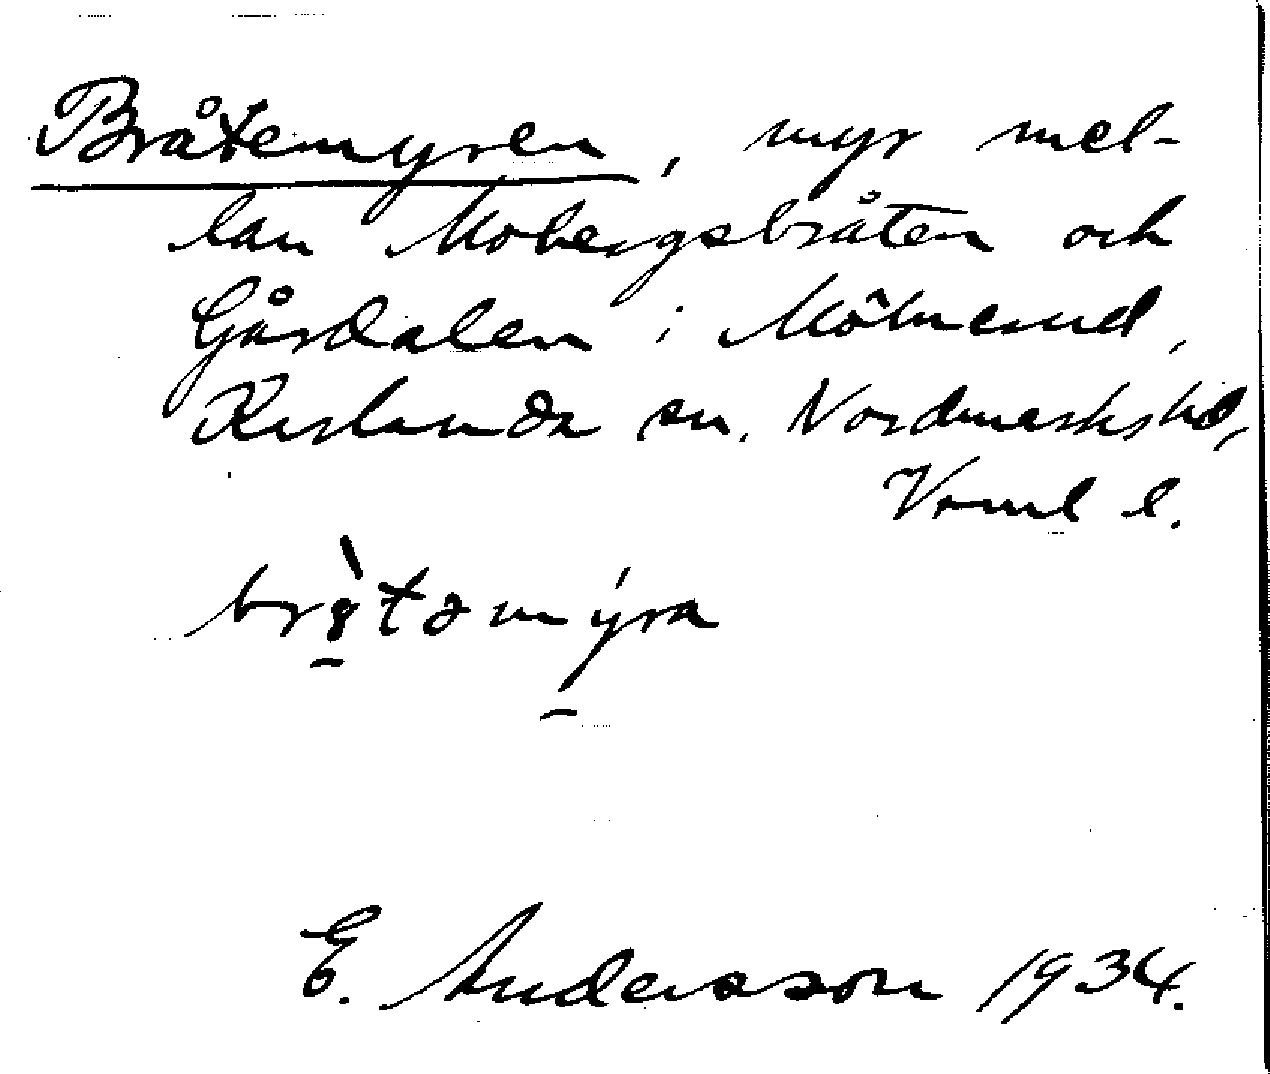 Bråtemyren, myr mel-
lan Mobergsbråten och
Gårdalen i Mölnerud,
Karlanda sn. Nordmarks hd,
Vrml l.
E. Andersson 1934.